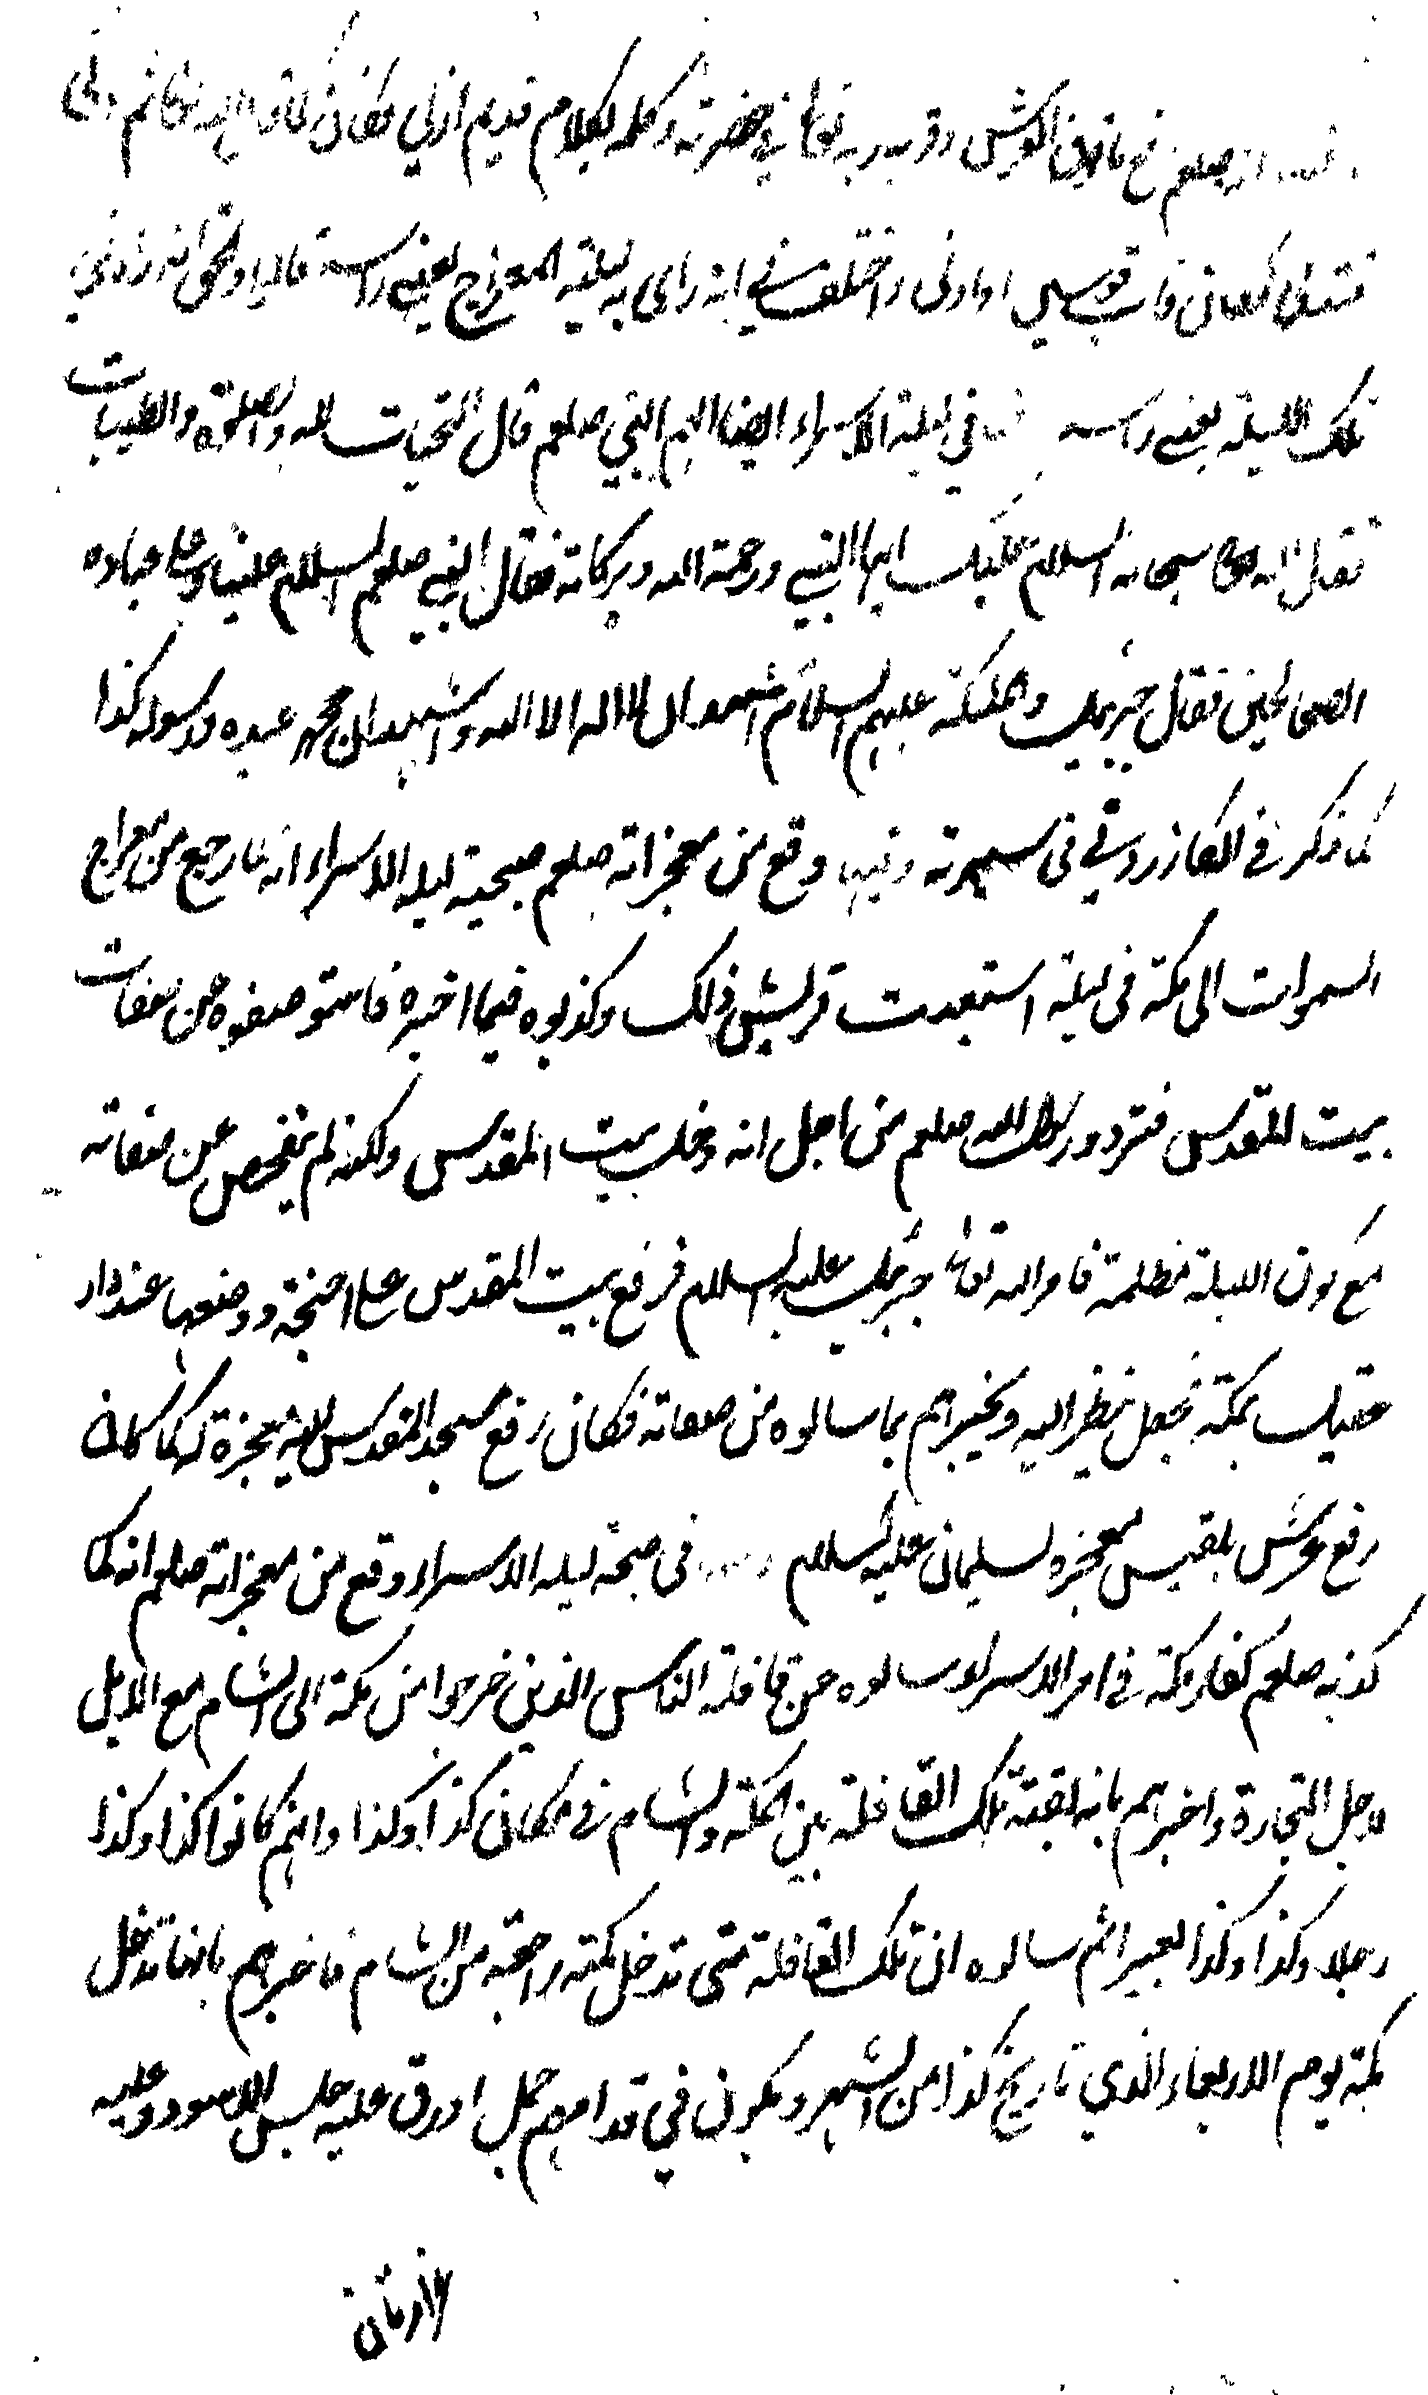 صلعم الى ما فوق العرش وقربه ربه تعالى في حضرته وكلمه بكلام قديم ازلي فكان كما قال الله تعالى ثم دنى
فتدلى فكان قاب قوسين او ادنى واختلف في انه راى ربه ليلة المعراج بعيني راسه قالوا والحق انه راه في
تلك الليلة بعيني راسه في ليلة الاسراء ايضا ان النبي صلعم قال التحيات لله والصلوة والطيبات
فقال الله سبحانه السلام عليك ايها النبي ورحمة الله وبركاته فقال النبي صلعم السلام علينا وعلى عباده
الصالحين فقال جبرئيل والملئكة عليهم السلام اشهد ان لا اله الا الله واشهد ان محمد عبده ورسوله كذا
كما ذكر في الكازروني في سيرته وفيها وقع من معجزاته صلعم صبحية ليله الاسراء انه لما رجع من معراج
السموات الى مكة في ليلة استبعدت قريش ذلك وكذبوه فيما اخبره فاستوصفوه من صفات
بيت المقدس فتردد رسول الله صلعم من اجل انه دخل بيت المقدس ولكنه لم يتفحص عن صفاته
مع كون الليلة مظلمة فامر الله تعالى جبرئيل عليه السلام فرفع بيت المقدس على اجنحته ووضعها عند دار
عقيل بمكة فجعل ينظر اليه ويخبرهم بما سالوه من صفاته فكان رفع مسجد المقدس معجزة له كما كان
رفع عرش بلقيس معجزه لسليمان عليه السلام في صبحة ليله الاسراء وقع من معجزاته صلعم انه لما
كذبه صلعم كفار مكة في امر الاسراء وسالوه عن قافلة الناس الذين خرجوا من مكة الى الشام مع الابل
لاجل التجارة واخبرهم بانه لقيته تلك القافلة بين المكة والشام في مكان كذا وكذا وانهم كانوا كذا وكذا
رجلا وكذا وكذا بعيرا ثم سالوه ان تلك القافلة متى تدخل مكة راجعة من الشام فاخبرهم بانها تدخل
مكة يوم الاربعاء الذي تاريخ كذا من الشهر ويكون في قدامهم جمل اورق عليه جلس الاسود وعليه